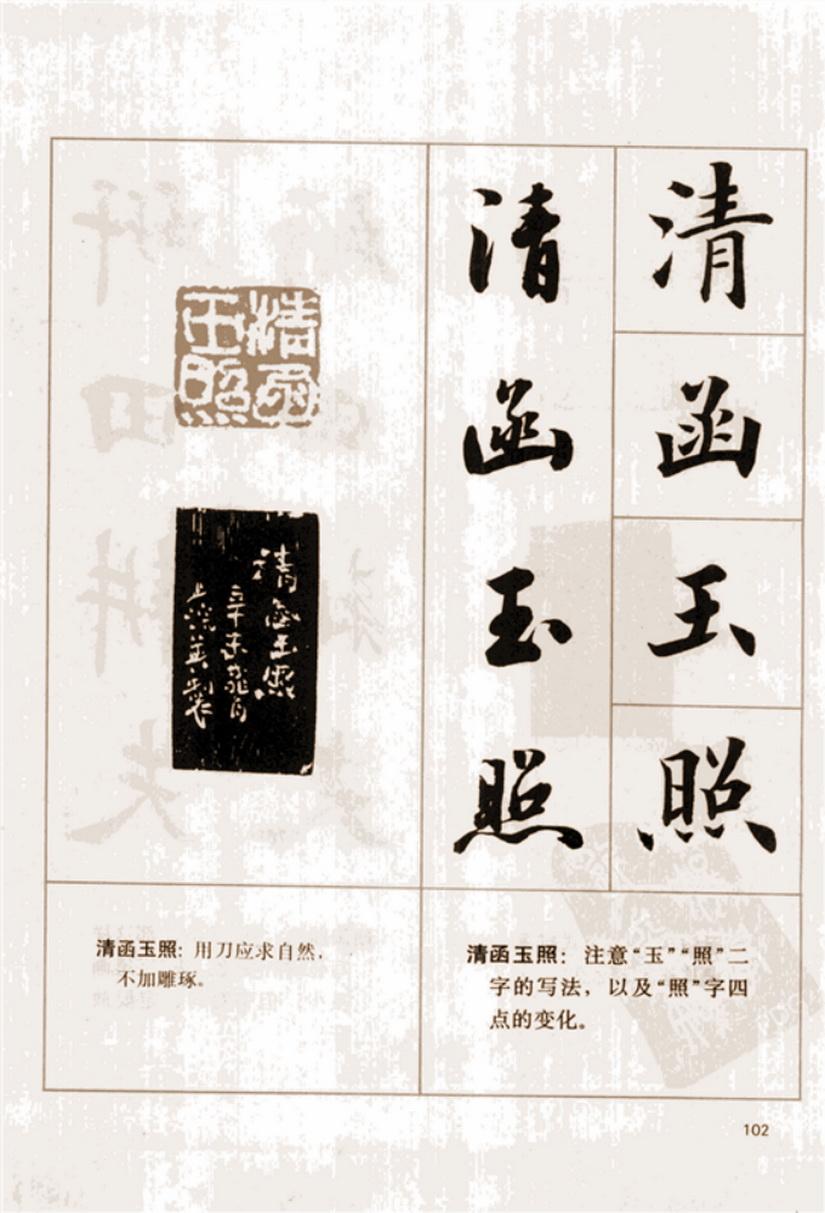 清函玉照
清函玉照
清函玉照
清函玉照
辛未
製
清函玉照：注意“玉”“照”二
字的写法，以及“照”字四
点的变化。
清函玉照：用刀应求自然，
不加雕琢。
102